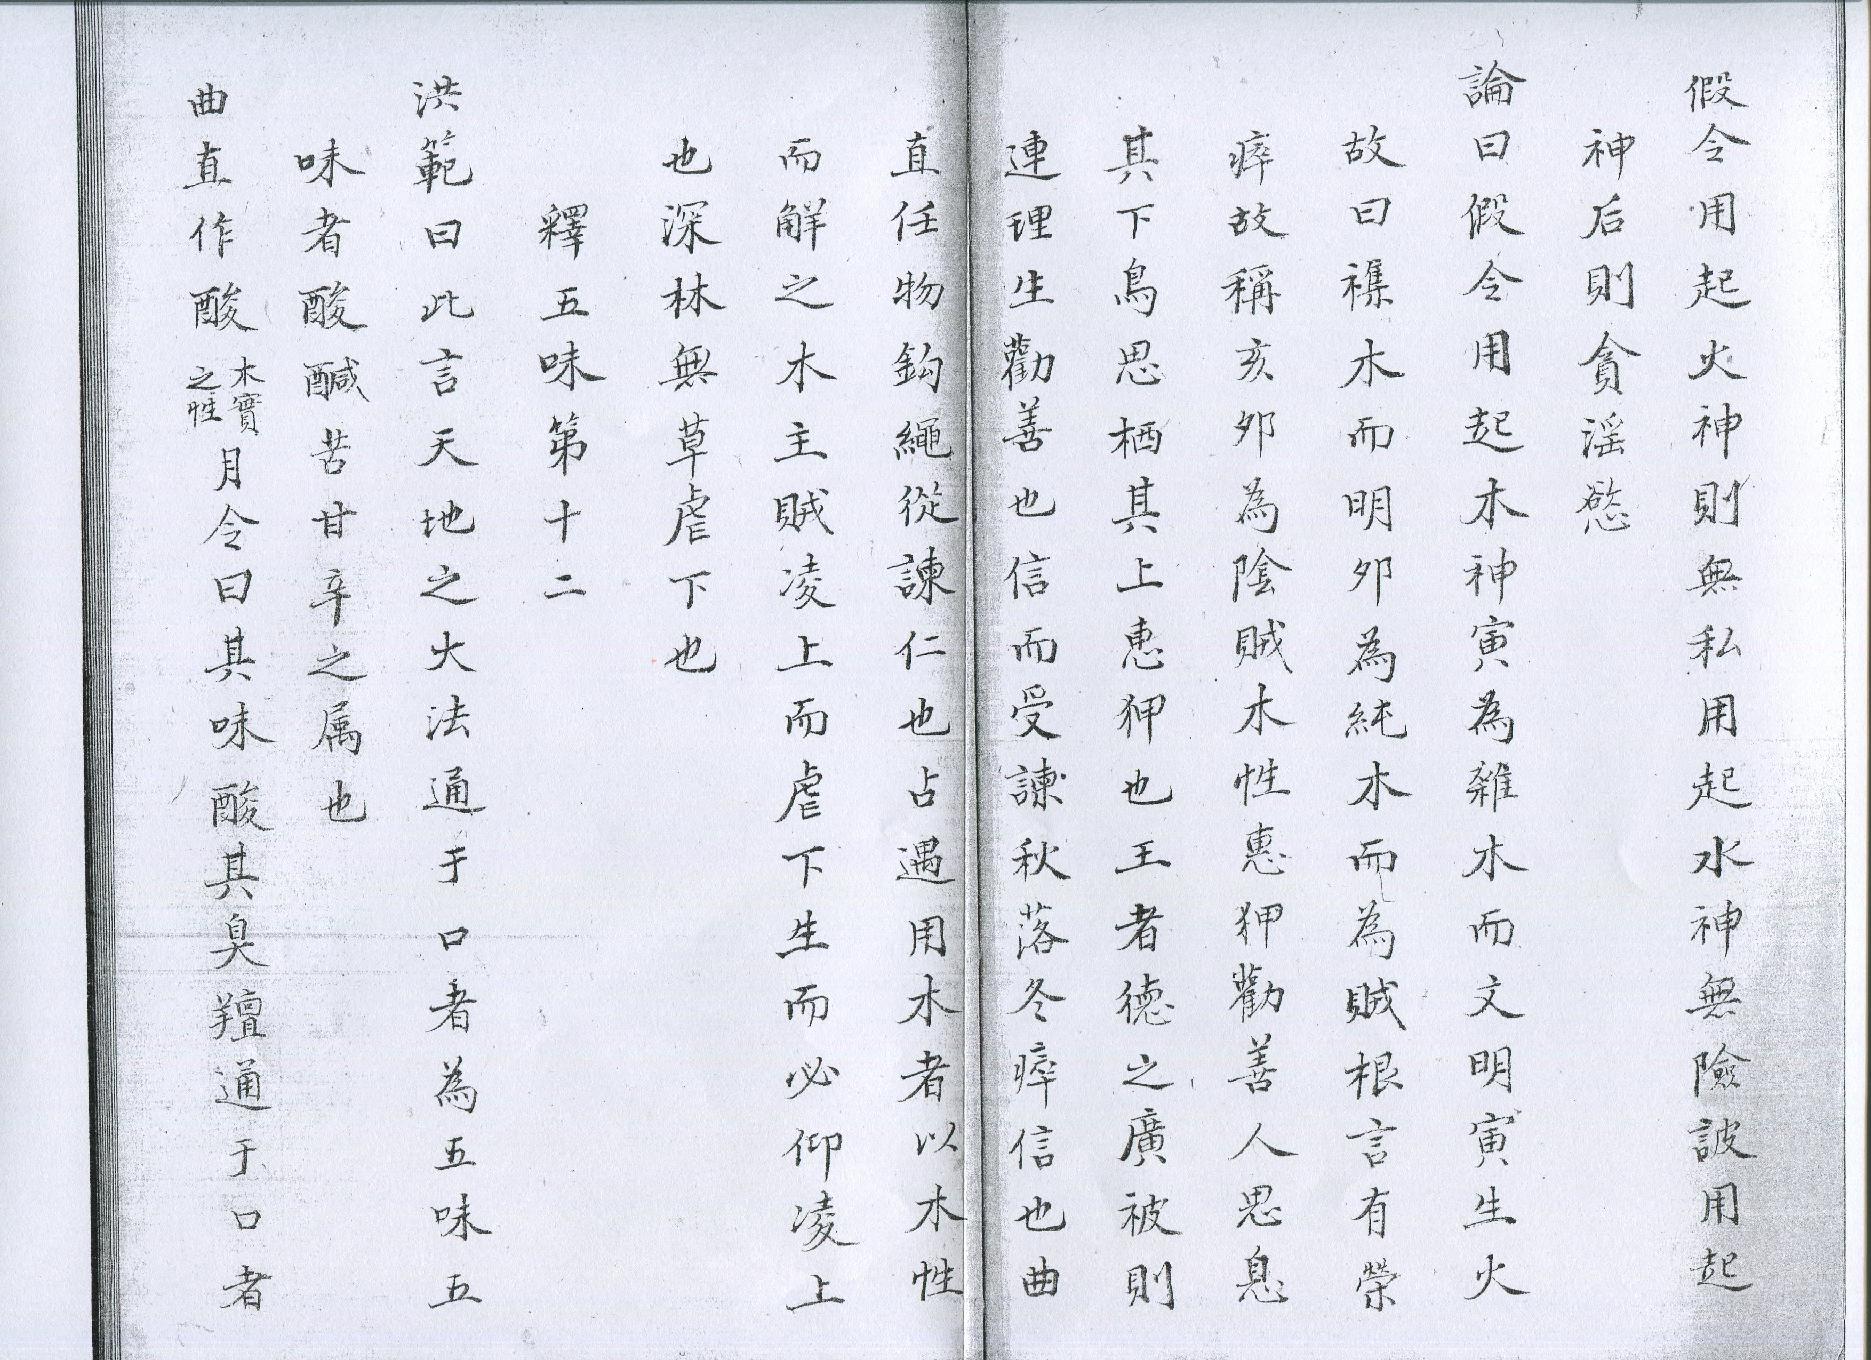 假令用起火神則無私用起水神無險詖用起
神后則貪淫慾
論曰假令用起木神寅為雜木而文明寅生火
故曰襍木而明夘為純木而為賊根言有榮
瘁故稱亥夘為陰賊木性惠狎勸善人思息
其下鳥思栖其上惠狎也王者德之廣被則
連理生勸善也信而受諫秋落冬瘁信也曲
直任物鈎繩從諫仁也占遇用木者以木性
而觧之木主賊凌上而虐下生而必仰凌上
也深林無草虐下也
釋五味第十二
洪範曰此言天地之大法通于口者為五味五
味者酸醎苦甘辛之属也
曲直作酸木實之性月令曰其味酸其臭羶通于口者